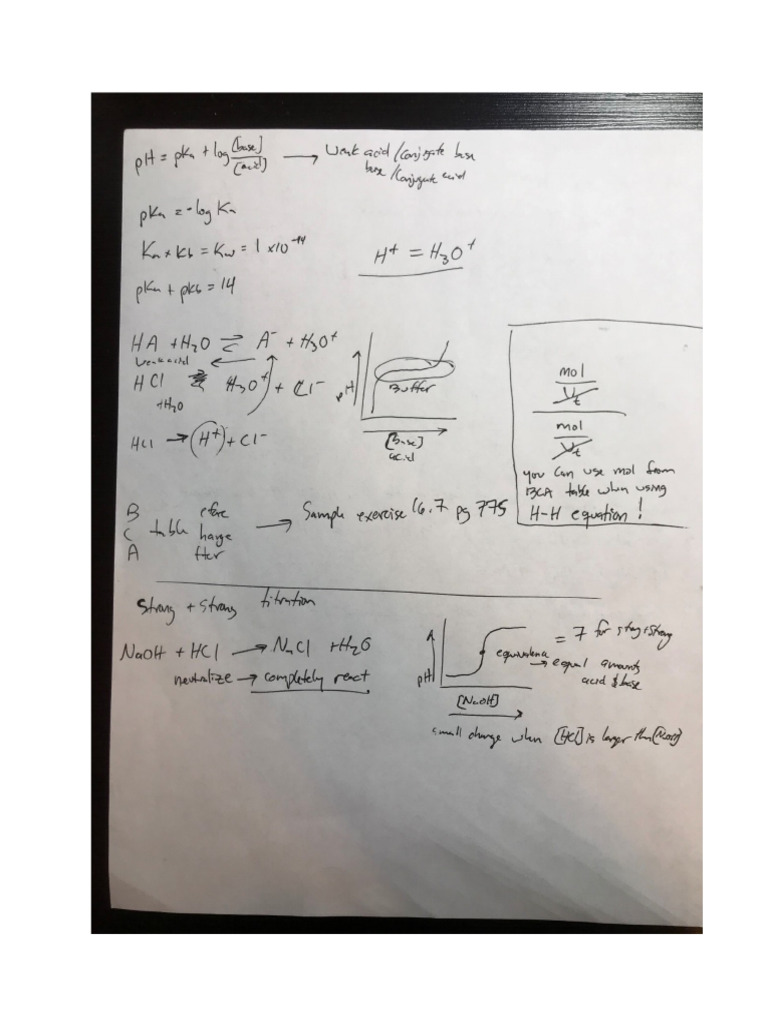 pH = pKa + log [base]/[acid] → Weak acid/conjugate base
base/conjugate acid
pKa = -log Ka
Ka × Kb = Kw = 1 × 10⁻¹⁴
H⁺ = H₃O⁺
pKa + pKb = 14
HA + H₂O ⇌ A⁻ + H₃O⁺
weak acid
HCl H₃O⁺ + Cl⁻
+H₂O
HCl → H⁺ + Cl⁻
pH
Buffer
[Base]
acid
mol
Vt
mol
Vt
you can use mol from
BCA table when using
H-H equation!
B efore
C table hange → Sample exercise 16.7 pg 775
A fter
Strong + strong titration
NaOH + HCl → NaCl + H₂O
neutralize → completely react
pH
equivalence = 7 for strong+strong
→ equal amounts
acid & base
[NaOH]
small change when [HCl] is larger than [NaOH]